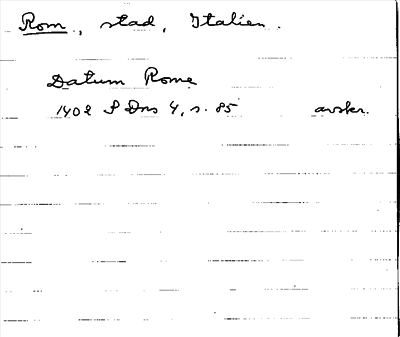 Rom, stad, Italien.
Datum Rome
1402 S Dns 4, s. 85 avskr.